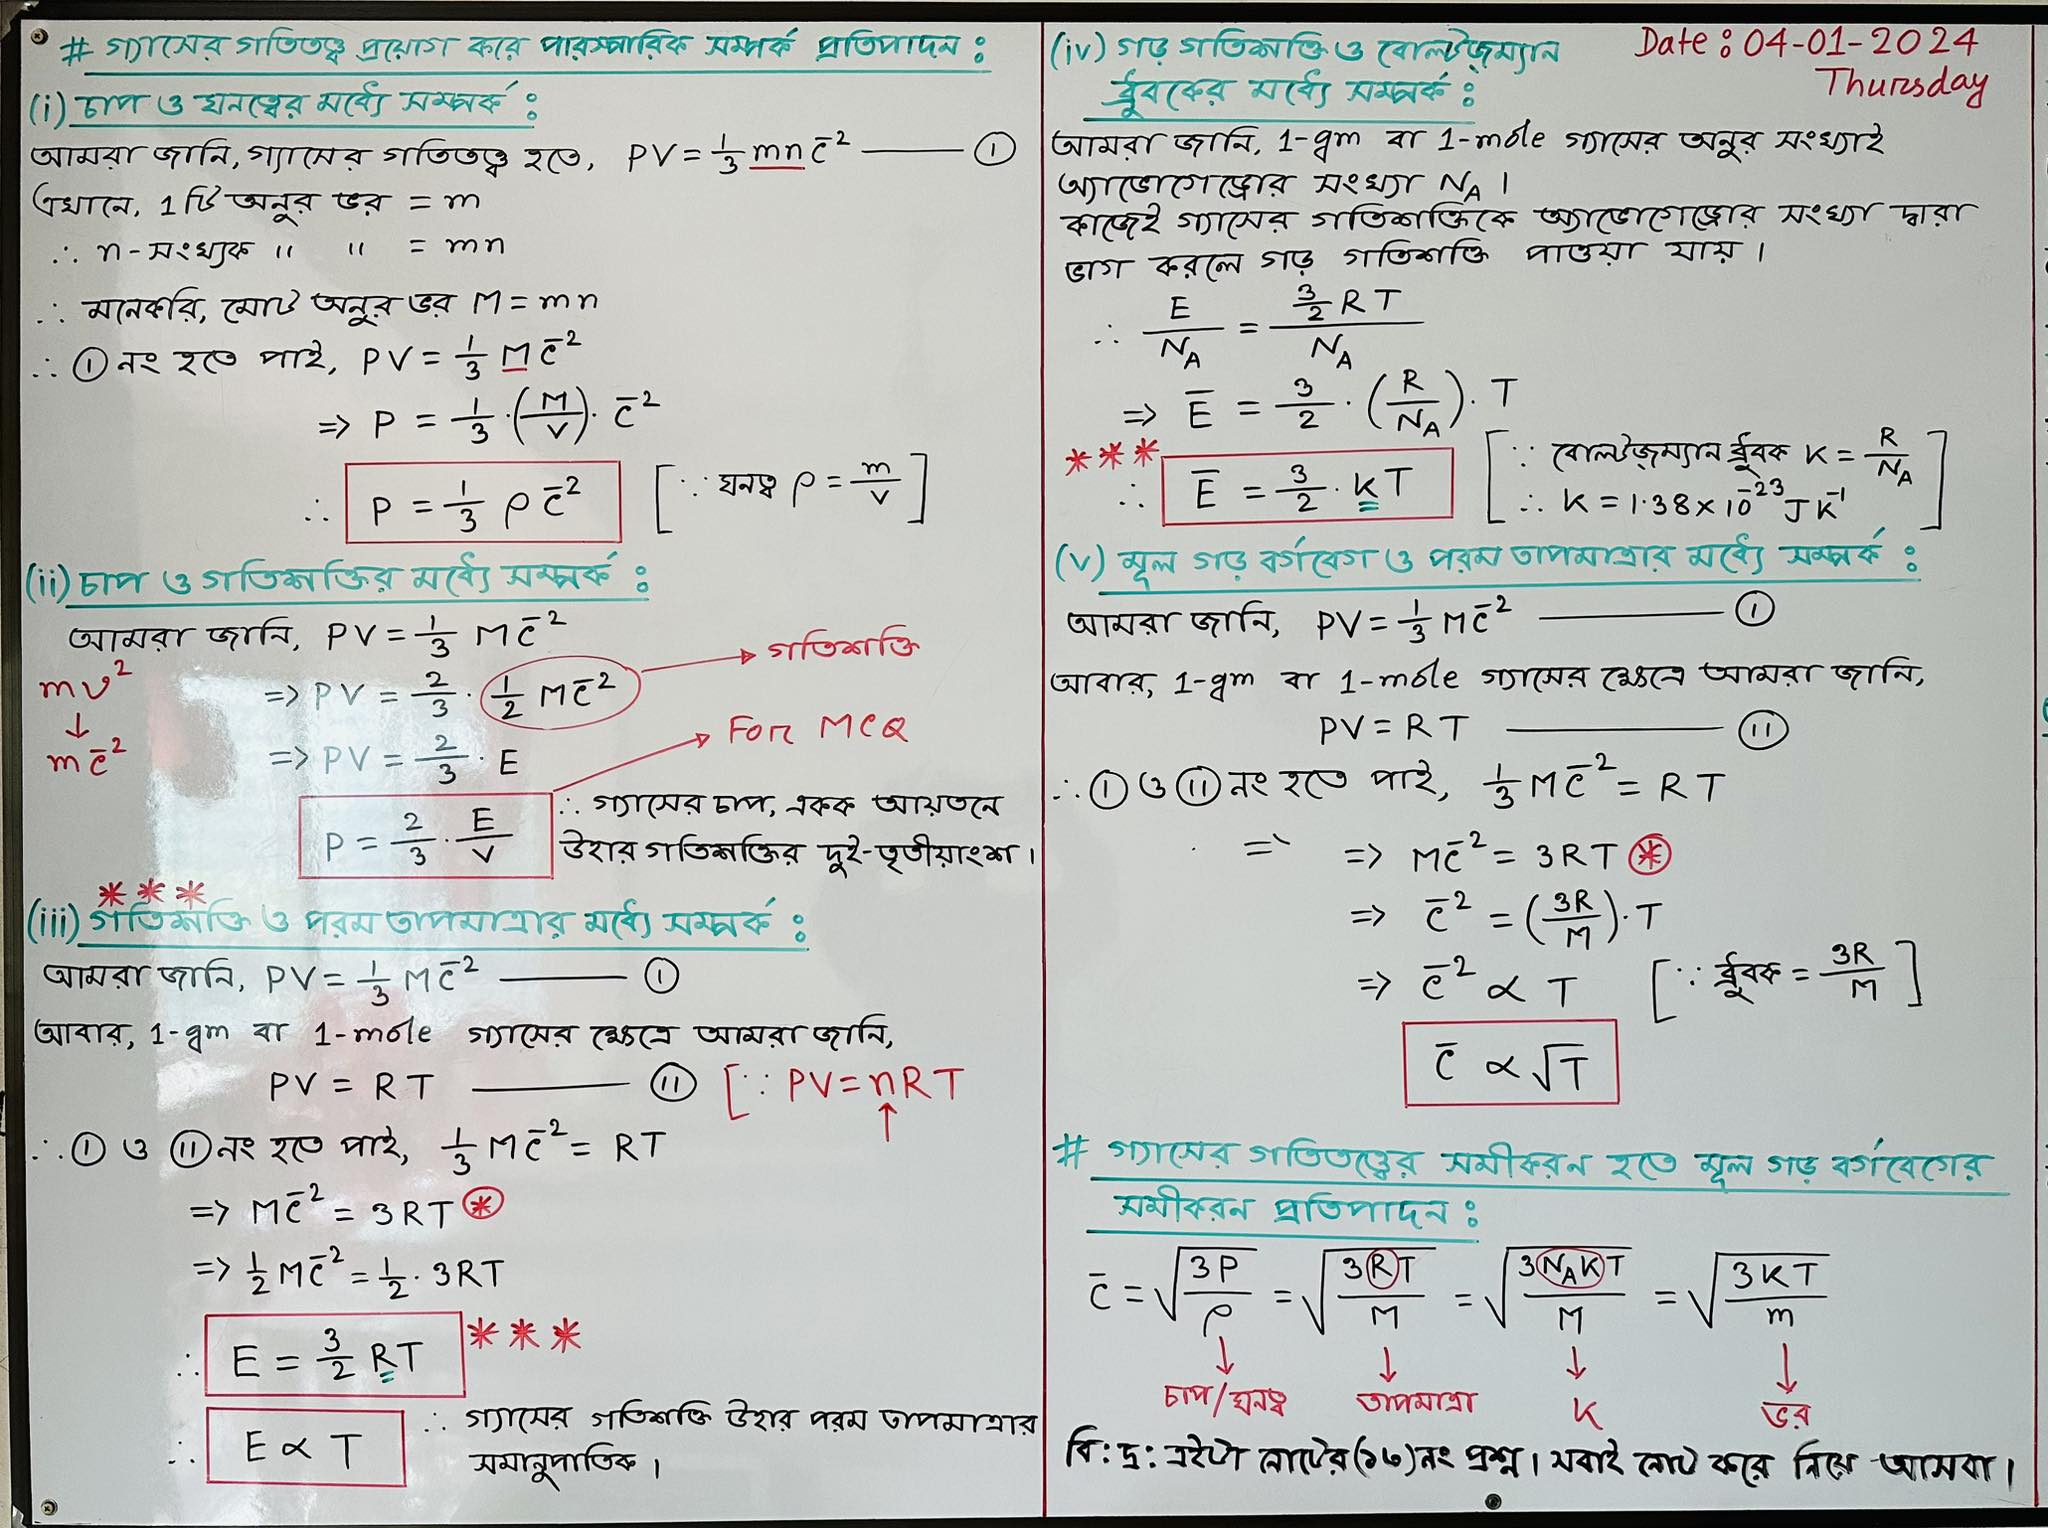 # গ্যাসের গতিতত্ত্ব প্রয়োগ করে পারস্পারিক সম্পর্ক প্রতিপাদন :
(i) চাপ ও ঘনত্বের মধ্যে সম্পর্ক :
আমরা জানি, গ্যাসের গতিতত্ত্ব হতে, PV = 1/3 mn c̄² —— ①
এখানে, 1 টি অনুর ভর = m
∴ n-সংখ্যক " " = mn
∴ মনেকরি, মোট অনুর ভর M = mn
∴ ① নং হতে পাই, PV = 1/3 M c̄²
=> P = 1/3 · (M/V) · c̄²
∴ P = 1/3 ρ c̄² [∵ ঘনত্ব ρ = m/v]
(ii) চাপ ও গতিশক্তির মধ্যে সম্পর্ক :
আমরা জানি, PV = 1/3 M c̄²
mv² ↓ m c̄²
=> PV = 2/3 · 1/2 M c̄² → গতিশক্তি
=> PV = 2/3 · E
P = 2/3 · E/V → For MCQ
∴ গ্যাসের চাপ, একক আয়তনে
উহার গতিশক্তির দুই-তৃতীয়াংশ।
***
(iii) গতিশক্তি ও পরম তাপমাত্রার মধ্যে সম্পর্ক :
আমরা জানি, PV = 1/3 M c̄² —— ①
আবার, 1-gm বা 1-mole গ্যাসের ক্ষেত্রে আমরা জানি,
PV = RT —— ⑪ [∵ PV = nRT
↑
∴ ① ও ⑪ নং হতে পাই, 1/3 M c̄² = RT
=> M c̄² = 3RT *
=> 1/2 M c̄² = 1/2 · 3RT
∴ E = 3/2 RT ***
∴ E ∝ T
∴ গ্যাসের গতিশক্তি উহার পরম তাপমাত্রার
সমানুপাতিক।
Date : 04-01-2024
Thursday
(iv) গড় গতিশক্তি ও বোল্টজ্‌ম্যান
ধ্রুবকের মধ্যে সম্পর্ক :
আমরা জানি, 1-gm বা 1-mole গ্যাসের অনুর সংখ্যাই
অ্যাভোগেড্রোর সংখ্যা N_A ।
কাজেই গ্যাসের গতিশক্তিকে অ্যাভোগেড্রোর সংখ্যা দ্বারা
ভাগ করলে গড় গতিশক্তি পাওয়া যায়।
∴ E/N_A = 3/2 RT / N_A
=> Ē = 3/2 · (R/N_A) · T
***
∴ Ē = 3/2 · kT
[∵ বোল্টজ্‌ম্যান ধ্রুবক K = R/N_A
∴ K = 1.38 × 10⁻²³ J K⁻¹]
(v) মূল গড় বর্গবেগ ও পরম তাপমাত্রার মধ্যে সম্পর্ক :
আমরা জানি, PV = 1/3 M c̄² —— ①
আবার, 1-gm বা 1-mole গ্যাসের ক্ষেত্রে আমরা জানি,
PV = RT —— ⑪
∴ ① ও ⑪ নং হতে পাই, 1/3 M c̄² = RT
=> => M c̄² = 3RT *
=> c̄² = (3R/M) · T
=> c̄² ∝ T [∵ ধ্রুবক = 3R/M]
c̄ ∝ √T
# গ্যাসের গতিতত্ত্বের সমীকরন হতে মূল গড় বর্গবেগের
সমীকরন প্রতিপাদন :
c̄ = √(3P/ρ) = √(3RT/M) = √(3N_A KT/M) = √(3KT/m)
↓ ↓ ↓ ↓
চাপ/ঘনত্ব তাপমাত্রা K ভর
বি: দ্র: এইটা নোটের (১৬) নং প্রশ্ন। সবাই নোট করে নিয়ে আসবা।